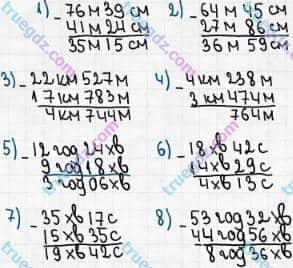 1) -76м 39см
41м 24см
35м 15см
2) -64м 45см
27м 86см
36м 59см
3) -22км 527м
17км 783м
4км 744м
4) -4км 238м
3км 474м
764м
5) -12год 24хв
9год 18хв
3год 06хв
6) -18хв 42с
14хв 29с
4хв 13с
7) -35хв 17с
15хв 35с
19хв 42с
8) -53год 32хв
44год 56хв
8год 36хв
truegdz.com